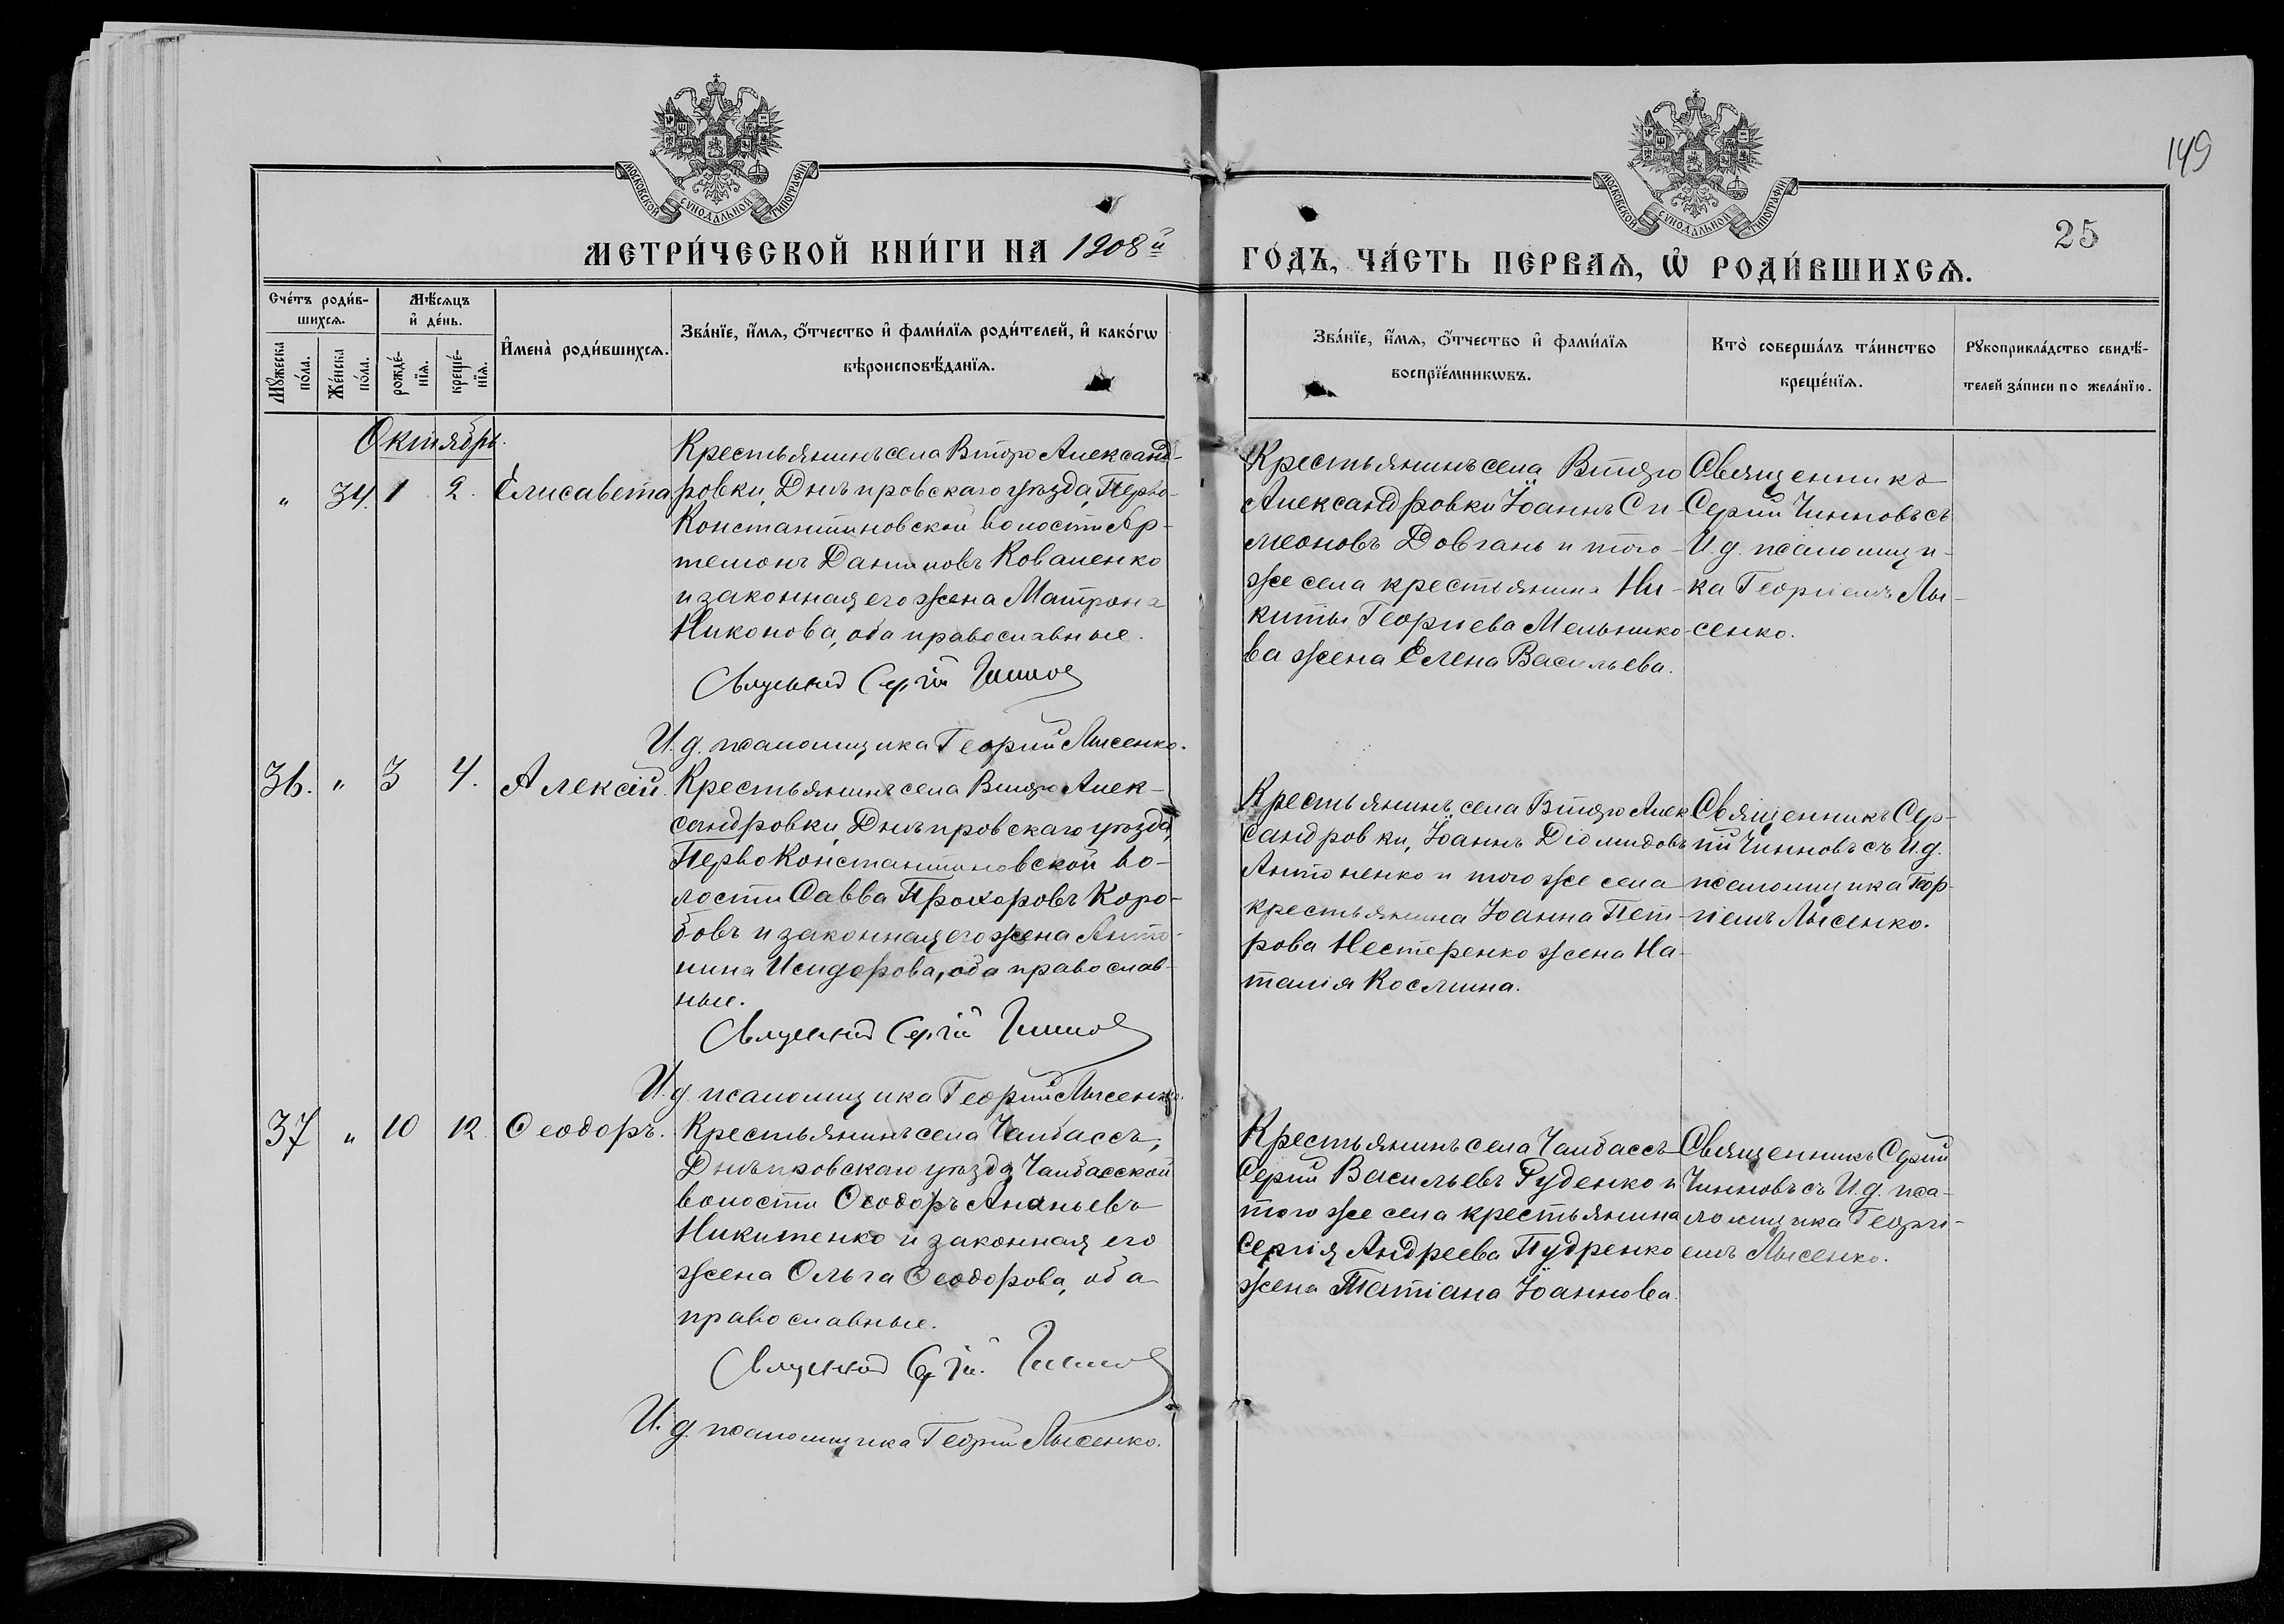 149
МОСКОВСКОЙ СѴНОДАЛЬНОЙ ТИПОГРАФІИ
МОСКОВСКОЙ СѴНОДАЛЬНОЙ ТИПОГРАФІИ
25
МЕТРИ́ЧЕСКОЙ КНИ́ГИ НА 1908й
ГО́ДЪ, ЧА́СТЬ ПЕРВАѦ, Ѡ҆ РОДИ́ВШИХСѦ.
Сче́тъ роди́в-
шихсѧ.
Мꙋжеска
по́ла.
Же́нска
по́ла.
Мѣ́сѧцъ
и҆ де́нь.
рожде́-
нїѧ.
креще́-
нїѧ.
И҆мена̀ роди́вшихсѧ.
Зва́нїе, и҆́мѧ, ѻ҆́тчество и҆ фами́лїѧ роди́телей, и҆ како́гѡ
вѣроисповѣ́данїѧ.
Зва́нїе, и҆́мѧ, ѻ҆́тчество и҆ фами́лїѧ
воспрїе́мникѡвъ.
Кто̀ соверша́лъ та́инство
креще́нїѧ.
Рꙋкоприкла́дство свидѣ́-
телей за́писи по жела́нїю.
Октябрь.
" 34. 1 2. Елисавета
Крестьянинъ села Второ Александ-
ровки, Днѣпровскаго уѣзда, Перво-
Константиновской волости Ар-
темонъ Даниловъ Коваленко
и законная его жена Матрона
Никонова, оба православные.
Священникъ Сергій Чинновъ
И. д. псаломщика Георгій Лысенко.
Крестьянинъ села Второ
Александровки Іоаннъ Си-
меоновъ Довгань и того-
же села крестьянина Ни-
киты Георгиева Мельнико-
ва жена Елена Васильева.
Священникъ
Сергій Чинновъ съ
И. д. псаломщи-
ка Георгіемъ Лы-
сенко.
36. " 3 4. Алексій.
Крестьянинъ села Второ Алек-
сандровки, Днѣпровскаго уѣзда,
Перво Константиновской во-
лости Савва Прохоровъ Коро-
бовъ и законная его жена Анто-
нина Исидорова, оба православ-
ные.
Священникъ Сергій Чинновъ
И. д. псаломщика Георгій Лысенко.
Крестьянинъ села Второ Алек-
сандровки, Іоаннъ Діомидовъ
Антоненко и того же села
крестьянина Іоанна Пет-
рова Нестеренко жена На-
талія Космина.
Священникъ Сер-
гій Чинновъ съ И.д.
псаломщика Геор-
гіемъ Лысенко.
37 " 10 12. Ѳеодоръ.
Крестьянинъ села Чалбассъ,
Днѣпровскаго уѣзда, Чалбасской
волости Ѳеодоръ Ананьевъ
Никитенко и законная его
жена Ольга Ѳеодорова, оба
православные.
Священникъ Сергій Чинновъ
И. д. псаломщика Георгій Лысенко.
Крестьянинъ села Чалбассъ
Сергій Васильевъ Руденко и
того же села крестьянина
Сергія Андреева Пудренко
жена Татіана Іоаннова.
Священникъ Сергій
Чинновъ съ И. д. пса-
ломщика Георгі-
емъ Лысенко.